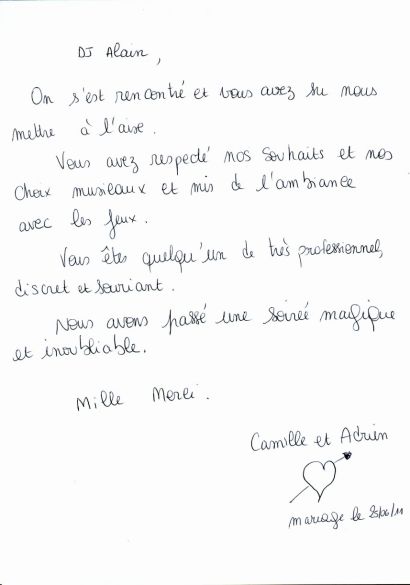 DJ Alain,
On s'est rencontré et vous avez su nous
mettre à l'aise.
Vous avez respecté nos souhaits et nos
choix musicaux et mis de l'ambiance
avec les jeux.
Vous êtes quelqu'un de très professionnel,
discret et souriant.
Nous avons passé une soirée magique
et inoubliable.
Mille Merci.
Camille et Adrien
mariage le 25/06/11